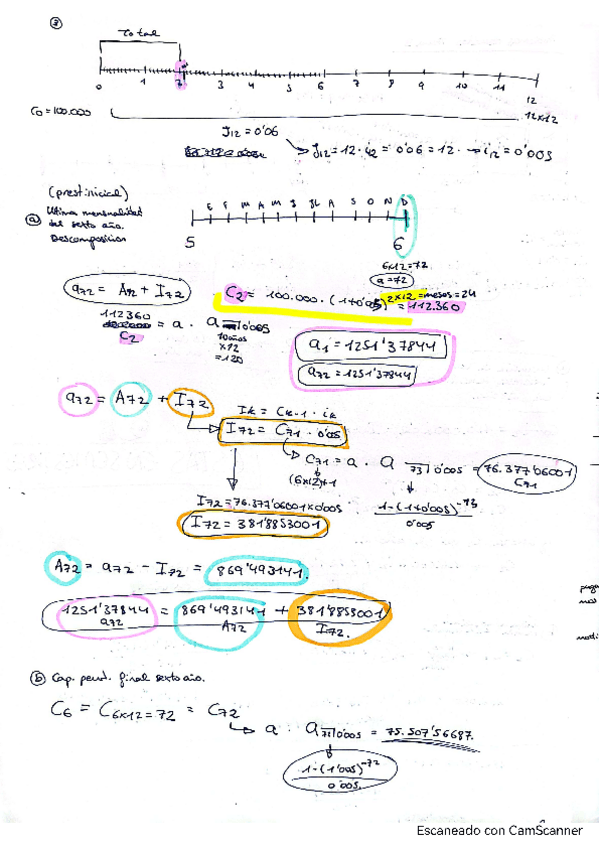 ③
Total
0 1 2 3 4 5 6 7 8 9 10 11 12
12x12
C0=100.000
J12=0'06
J12=12·i12=0'06=12· →i12=0'005
(prest. inicial)
ⓐ Última mensualidad
del sexto año.
Descomposición
E F M A M J JL A S O N D
5 6
6x12=72
a=72
a72 = A72 + I72
C2 = 100.000·(1+0'005)^2x12=meses=24 = 112.360
112360 = a · a 0'005
C2
10 años
x12
=120
a1=1251'37844
a72=1251'37844
a72 = A72 + I72
Ik = Ck-1 · ik
I72 = C71 · 0'05
C71 = a · a 73|0'005 = 76.377'06001
C71
(6x12)+1
I72=76.377'06001x0'005
1-(1+0'005)^-73
0'005
I72 = 381'8853001
A72 = a72 - I72 = 869'493141.
1251'37844 = 869'493141 + 381'8853001
a72 A72 I72.
ⓑ Cap. pend. final sexto año.
C6 = C6x12=72 = C72
a · a 71|0'005 = 75.507'56687.
1-(1'005)^-72
0'005.
Escaneado con CamScanner